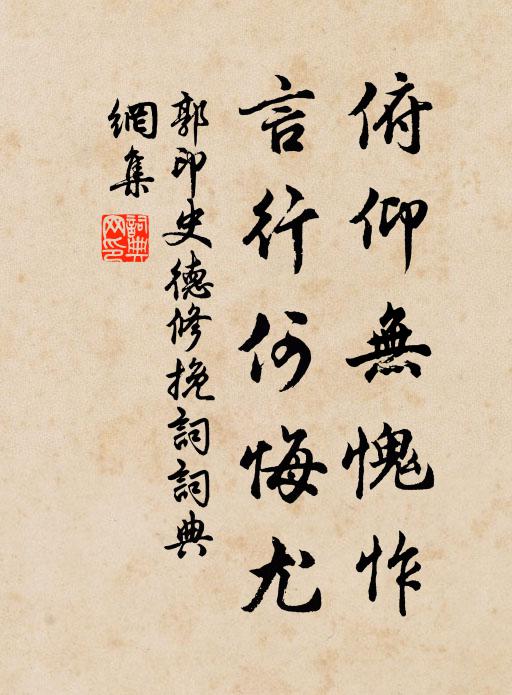 俯仰無愧怍
言行何悔尤
郭印史德修挽詞詞典
網集
詞典
网印